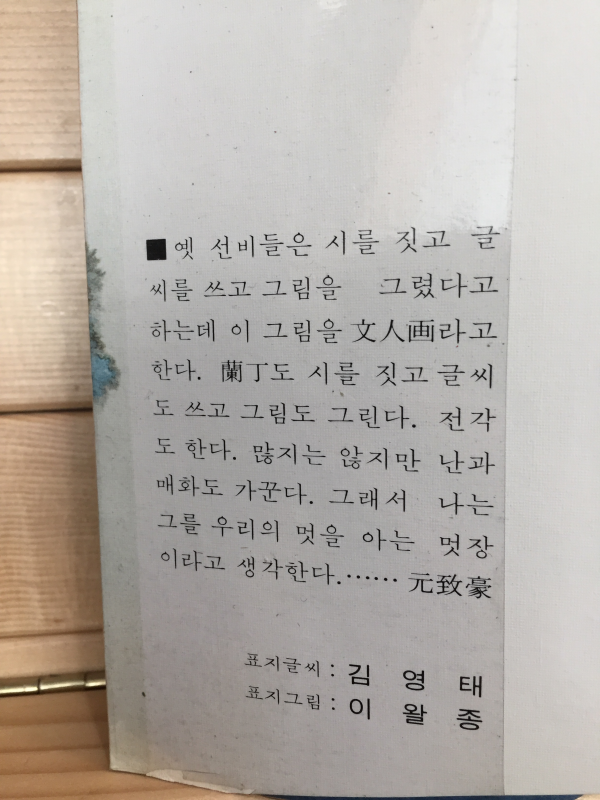 ■옛 선비들은 시를 짓고 글
씨를 쓰고 그림을 그렸다고
하는데 이 그림을 文人画라고
한다. 蘭丁도 시를 짓고 글씨
도 쓰고 그림도 그린다. 전각
도 한다. 많지는 않지만 난과
매화도 가꾼다. 그래서 나는
그를 우리의 멋을 아는 멋장
이라고 생각한다.…… 元致豪
표지글씨 : 김 영 태
표지그림 : 이 왈 종